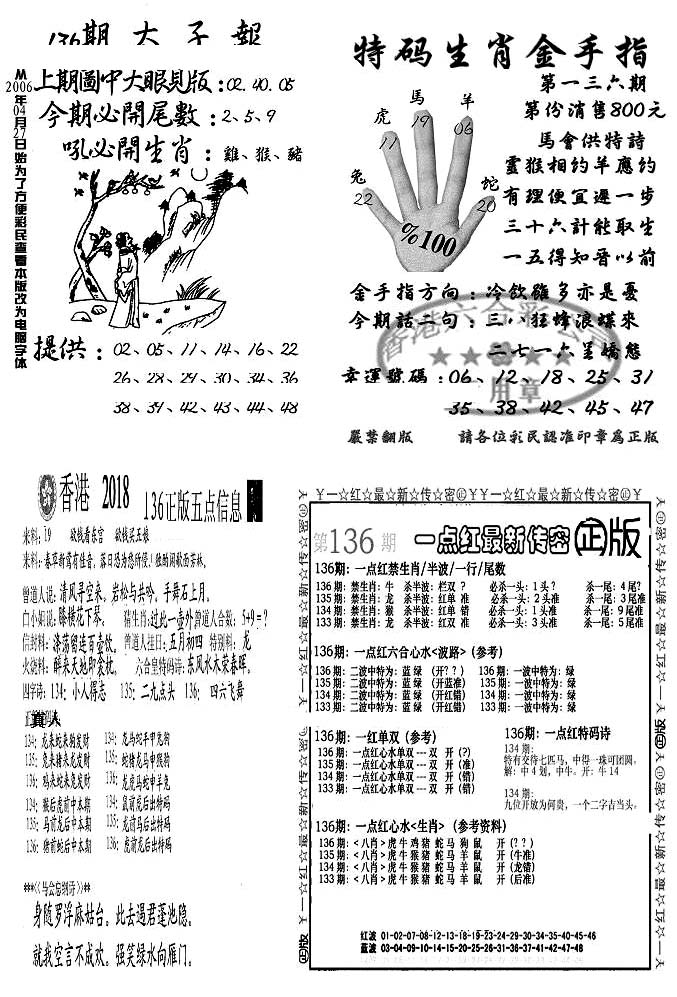 136期 大子報
从2006年04月27日始为了方便彩民查看本版改为电脑字体
上期圖中大眼見版：02.40.05
今期必開尾數：2、5、9
吼必開生肖：雞、猴、豬
提供：02、05、11、14、16、22
26、28、29、30、34、36
38、39、42、43、44、48
特码生肖金手指
第一三六期
第份消售800元
馬 羊
虎 19 06
11
兔 蛇
22 20
%100
馬會供特詩
靈猴相約羊應約
有理便宜遲一步
三十六計能取生
一五得知晉以前
金手指方向：冷飲雖多亦是憂
今期話二句：三八狂蜂浪蝶來
二七一六呈嬌態
幸運號碼：06、12、18、25、31
35、38、42、45、47
嚴禁翻版 請各位彩民認准印章爲正版
香港六合彩
★★★★
用章
香港 2018 136正版五点信息
来料：19 欲钱看东宫 欲钱买五娘
来料：春草新莺有佳音，落日恐为愁所停！独酌闲歌西芳林。
曾道人说：清风寻空来，岩松与共吟，手舞石上月。
白小姐说：膝横花下琴。 猜生肖：过此一壶外 曾道人合额：5+9=？
信封料：涤荡留连百壶饮。 曾道人挂日：五月初四 特别料：龙
火烧料：醉来天地即衾枕。 六合皇特码诗：东风水木荣春晖。
四字诗：134：小人得志 135：二九点头 136：四六飞舞
134：龙来蛇来狗发财 134：龙马蛇手中龙狗
135：兔来猪来龙发财 135：蛇猪龙马中猴狗
136：鸡来蛇来兔发财 136：龙虎马蛇中羊兔
134：猴后虎前中本期 134：鼠前虎后出特码
135：马前龙后中本期 135：龙前马后出特码
136：猪前蛇后中本期 136：虎前龙后出特码
**《马会忘别诗》**
身随罗浮麻姑台。此去遏君蓬池隐。
就我空言不成欢。强笑绿水向雁门。
丫一☆红☆最☆新☆传☆密㊣丫丫一☆红☆最☆新☆传☆密㊣丫
第136期 一点红最新传密 正版
136期：一点红禁生肖/半波/一行/尾数
136期：禁生肖：牛 杀半波：栏双？ 必杀一头：1头？ 杀一尾：4尾？
135期：禁生肖：龙 杀半波：红单 准 必杀一头：2头准 杀一尾：3尾准
134期：禁生肖：猴 杀半波：红单 错 必杀一头：1头准 杀一尾：9尾准
133期：禁生肖：龙 杀半波：红双 准 必杀一头：3头准 杀一尾：5尾准
136期：一点红六合心水<波路>（参考）
136期：二波中特为：蓝 绿 （开？？） 136期：一波中特为：绿
135期：二波中特为：蓝 绿 （开蓝准） 135期：一波中特为：绿
134期：二波中特为：蓝 绿 （开红错） 134期：一波中特为：绿
133期：二波中特为：蓝 绿 （开红错） 133期：一波中特为：绿
136期：一红单双（参考）
136期：一点红心水单双---双 开（？）
135期：一点红心水单双---双 开（准）
134期：一点红心水单双---双 开（错）
133期：一点红心水单双---双 开（错）
136期：一点红特码诗
134期：
特有交待七匹马，中得一珠可团圆。
解：中4划，中牛。开：牛14
134期：
九位开放为何贵，一个二字古当头。
136期：一点红心水<生肖>（参考资料）
136期：<八肖>虎 牛 鸡 猪 蛇 马 狗 鼠 开（？？）
135期：<八肖>虎 牛 猴 猪 蛇 马 羊 鼠 开（牛准）
134期：<八肖>虎 牛 猴 猪 蛇 马 羊 鼠 开（龙错）
133期：<八肖>虎 牛 猴 猪 蛇 马 羊 鼠 开（后准）
红波 01-02-07-08-12-13-18-19-23-24-29-30-34-35-40-45-46
蓝波 03-04-09-10-14-15-20-25-26-31-36-37-41-42-47-48